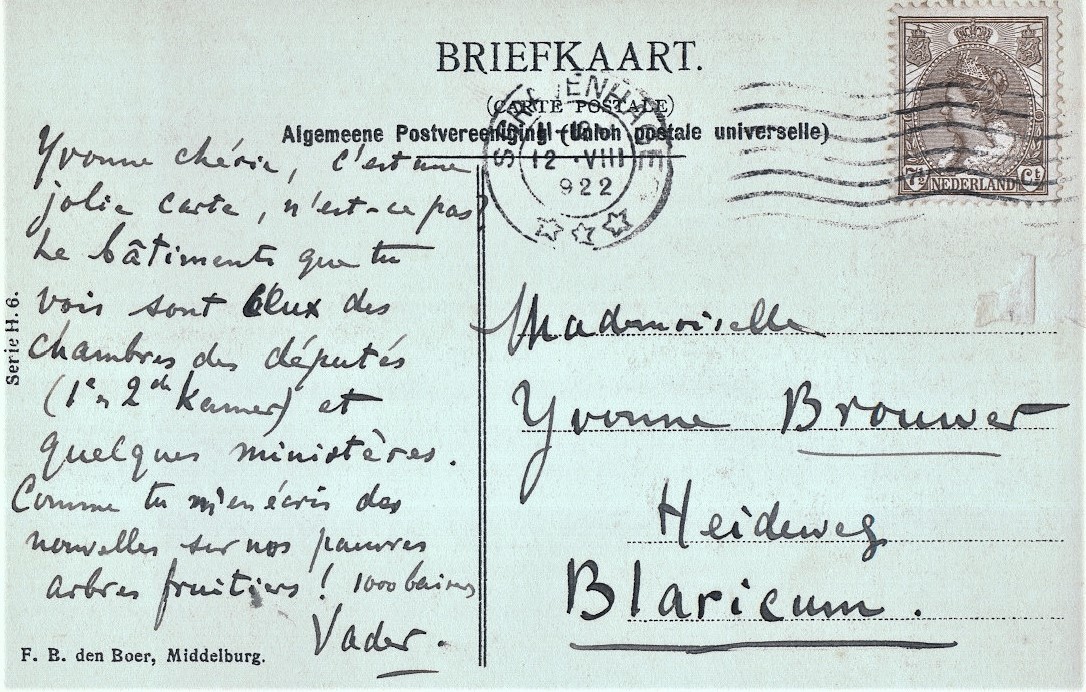 BRIEFKAART.
(CARTE POSTALE)
Algemeene Postvereeniging (Union postale universelle)
12 VIII
922
7½ Ct
NEDERLAND
Yvonne chérie, c'est une
jolie carte, n'est-ce pas?
Le bâtiments que tu
vois sont ceux des
chambres des députés
(1e en 2de Kamer) et
quelques ministères.
Comme tu m'en écris des
nouvelles sur nos pauvres
arbres fruitiers! 1000 baisers
Vader.
Mademoiselle
Yvonne Brouwer
Heideweg
Blaricum.
Serie H. 6.
F. B. den Boer, Middelburg.